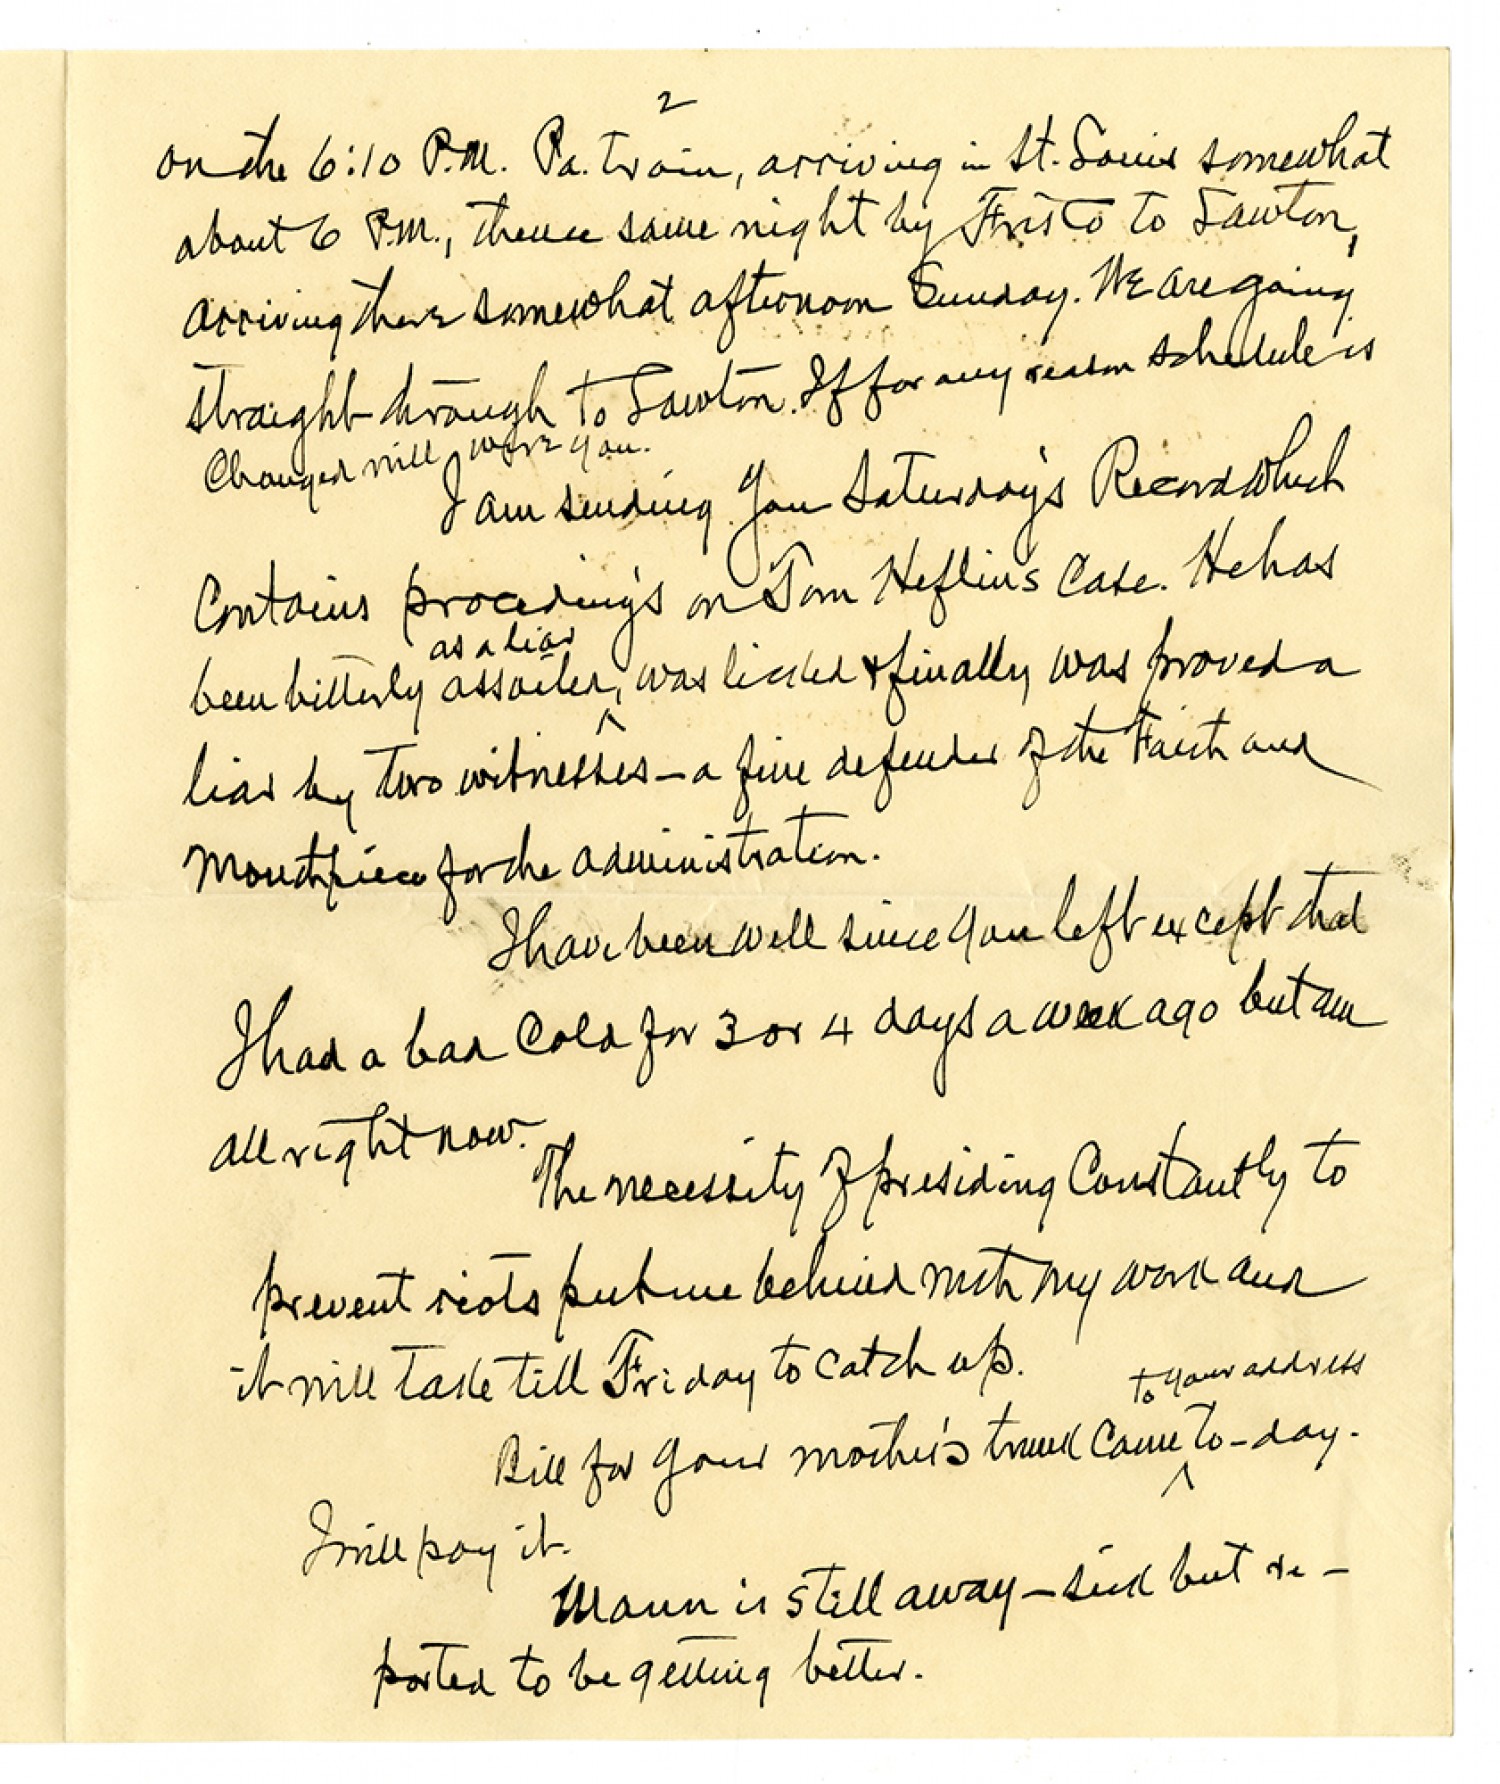 2
on the 6:10 P.M. Pa. train, arriving in St. Louis somewhat
about 6 P.M., thence same night by Frisco to Lawton,
arriving there somewhat afternoon Sunday. We are going
straight through to Lawton. If for any reason schedule is
changed will wire you.
I am sending you Saturday's Record which
contains procedings on Tom Heflin's case. He has
as a liar
been bitterly assailed, was licked & finally was proved a
liar by two witnesses – a fine defender of the Faith and
Mouthpiece for the administration.
I have been well since you left except that
I had a bad cold for 3 or 4 days a week ago but am
all right now.
The necessity of presiding constantly to
prevent riots put me behind with my work and
it will take till Friday to catch up.
to your address
Bill for your mother's trunk came to-day.
I will pay it.
Mann is still away – sick but re-
ported to be getting better.